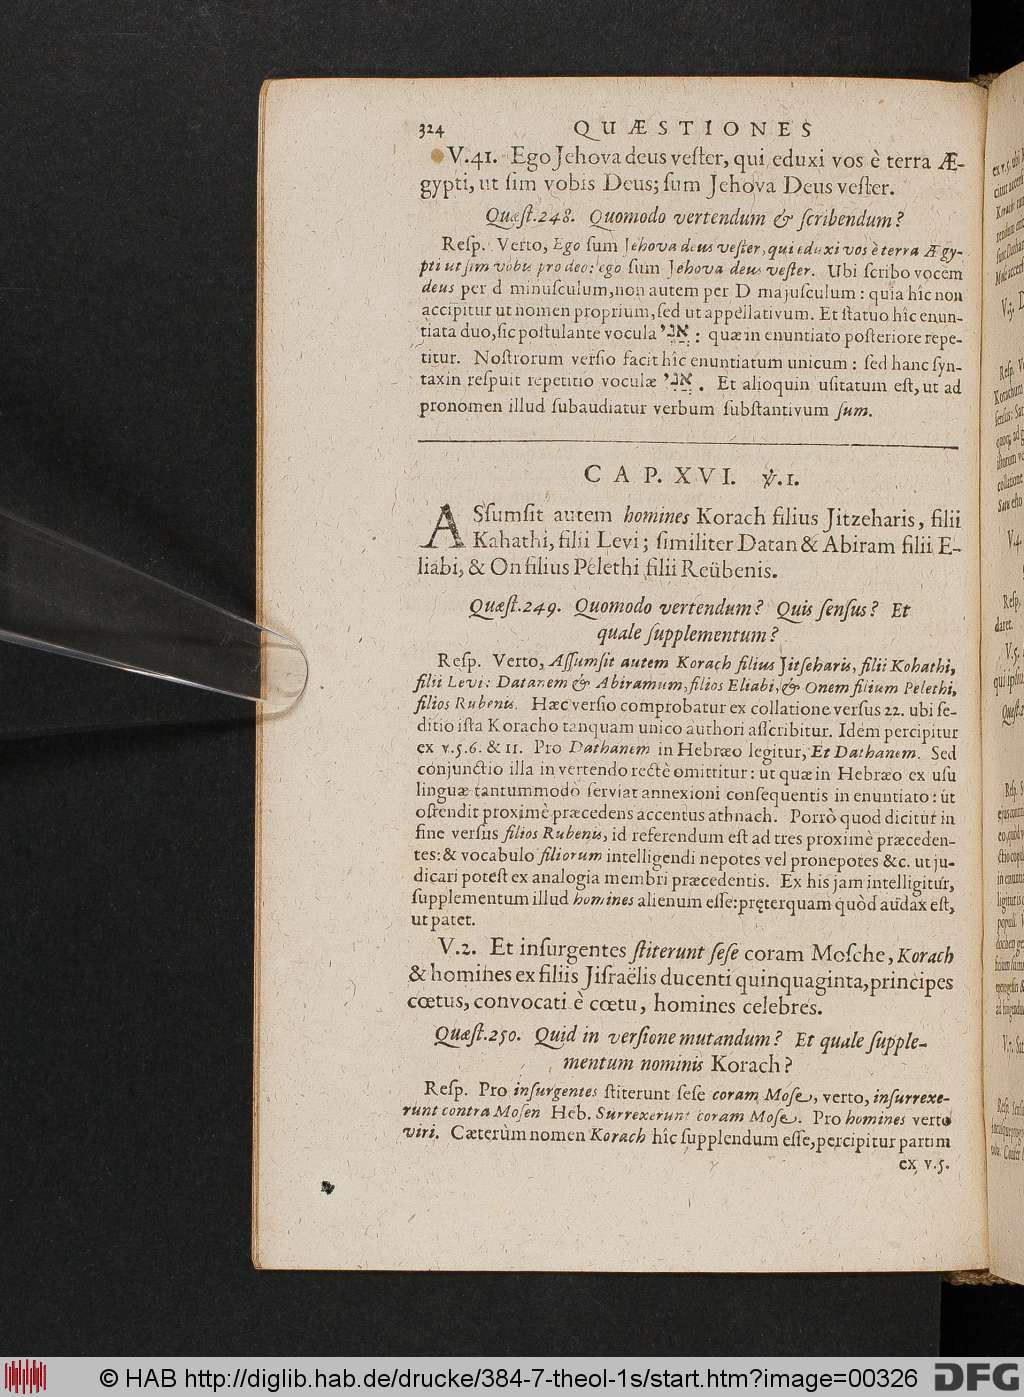 324 QUÆSTIONES
V.41. Ego Jehova deus veſter, qui eduxi vos è terra Æ-
gypti, ut ſim vobis Deus; ſum Jehova Deus veſter.
Quæſt.248. Quomodo vertendum & ſcribendum?
Reſp. Verto, Ego ſum Jehova deus veſter, qui eduxi vos è terra Ægy-
pti ut ſim vobis pro deo: ego ſum Jehova deus veſter. Ubi ſcribo vocem
deus per d minuſculum, non autem per D majuſculum: quia hîc non
accipitur ut nomen proprium, ſed ut appellativum. Et ſtatuo hîc enun-
tiata duo, ſic poſtulante vocula אֲנִי: quæ in enuntiato poſteriore repe-
titur. Noſtrorum verſio facit hîc enuntiatum unicum: ſed hanc ſyn-
taxin reſpuit repetitio voculæ אֲנִי. Et alioquin uſitatum eſt, ut ad
pronomen illud ſubaudiatur verbum ſubſtantivum ſum.
CAP. XVI. ℣.1.
ASſumſit autem homines Korach filius Jitzeharis, filii
Kahathi, filii Levi; ſimiliter Datan & Abiram filii E-
liabi, & On filius Pelethi filii Reübenis.
Quæſt.249. Quomodo vertendum? Quis ſenſus? Et
quale ſupplementum?
Reſp. Verto, Aſſumſit autem Korach filius Jitſeharis, filii Kohathi,
filii Levi: Datanem & Abiramum, filios Eliabi, & Onem filium Pelethi,
filios Rubenis. Hæc verſio comprobatur ex collatione verſus 22. ubi ſe-
ditio iſta Koracho tanquam unico authori aſſcribitur. Idem percipitur
ex v.5.6. & 11. Pro Dathanem in Hebræo legitur, Et Dathanem. Sed
conjunctio illa in vertendo rectè omittitur: ut quæ in Hebræo ex uſu
linguæ tantummodò ſerviat annexioni conſequentis in enuntiato: ut
oſtendit proximè præcedens accentus athnach. Porrò quod dicitur in
fine verſus filios Rubenis, id referendum eſt ad tres proximè præceden-
tes: & vocabulo filiorum intelligendi nepotes vel pronepotes &c. ut ju-
dicari poteſt ex analogia membri præcedentis. Ex his jam intelligitur,
ſupplementum illud homines alienum eſſe: pręterquam quòd audax eſt,
ut patet.
V.2. Et inſurgentes ſtiterunt ſeſe coram Moſche, Korach
& homines ex filiis Jiſraëlis ducenti quinquaginta, principes
cœtus, convocati è cœtu, homines celebres.
Quæſt.250. Quid in verſione mutandum? Et quale ſupple-
mentum nominis Korach?
Reſp. Pro inſurgentes ſtiterunt ſeſe coram Moſe, verto, inſurrexe-
runt contra Moſen Heb. Surrexerunt coram Moſe. Pro homines verto
viri. Cæterùm nomen Korach hîc ſupplendum eſſe, percipitur partim
ex v.5.
© HAB http://diglib.hab.de/drucke/384-7-theol-1s/start.htm?image=00326
DFG